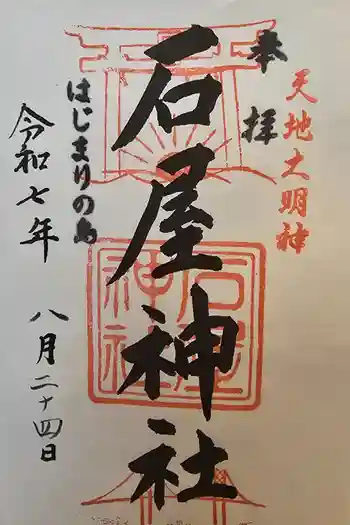 天地大明神
奉拝
石屋神社
石屋神社
はじまりの島
令和七年 八月二十四日